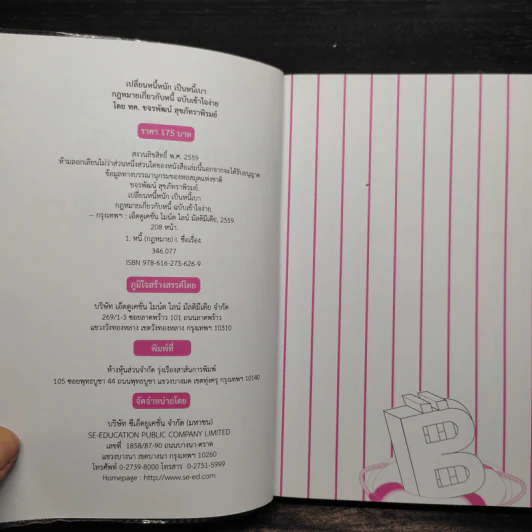 เปลี่ยนหนี้หนัก เป็นหนี้เบา
กฎหมายเกี่ยวกับหนี้ ฉบับเข้าใจง่าย
โดย ทศ. ขจรพัฒน์ สุขภัทราพิรมย์
ราคา 175 บาท
สงวนลิขสิทธิ์ พ.ศ. 2559
ห้ามลอกเลียนไม่ว่าส่วนหนึ่งส่วนใดของหนังสือเล่มนี้นอกจากจะได้รับอนุญาต
ข้อมูลทางบรรณานุกรมของหอสมุดแห่งชาติ
ขจรพัฒน์ สุขภัทราพิรมย์.
เปลี่ยนหนี้หนัก เป็นหนี้เบา
กฎหมายเกี่ยวกับหนี้ ฉบับเข้าใจง่าย.
– กรุงเทพฯ : เอ็ดดูเคชั่น ไมน์ด ไลน์ มัลติมีเดีย, 2559.
208 หน้า.
1. หนี้ (กฎหมาย) I. ชื่อเรื่อง.
346.077
ISBN 978-616-275-626-9
ภูมิใจสร้างสรรค์โดย
บริษัท เอ็ดดูเคชั่น ไมน์ด ไลน์ มัลติมีเดีย จำกัด
269/1-3 ซอยลาดพร้าว 101 ถนนลาดพร้าว
แขวงวังทองหลาง เขตวังทองหลาง กรุงเทพฯ 10310
พิมพ์ที่
ห้างหุ้นส่วนจำกัด รุ่งเรืองสาส์นการพิมพ์
105 ซอยพุทธบูชา 44 ถนนพุทธบูชา แขวงบางมด เขตทุ่งครุ กรุงเทพฯ 10140
จัดจำหน่ายโดย
บริษัท ซีเอ็ดยูเคชั่น จำกัด (มหาชน)
SE-EDUCATION PUBLIC COMPANY LIMITED
เลขที่ 1858/87-90 ถนนบางนา-ตราด
แขวงบางนา เขตบางนา กรุงเทพฯ 10260
โทรศัพท์ 0-2739-8000 โทรสาร 0-2751-5999
Homepage : http://www.se-ed.com